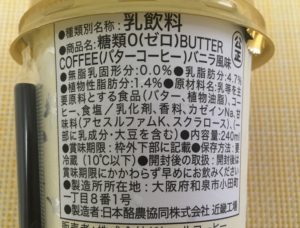 ●種類別名称：乳飲料
●商品名：糖類0(ゼロ)BUTTER
COFFEE(バターコーヒー)バニラ風味
●無脂乳固形分：0.0% ●乳脂肪分：4.7%
●植物性脂肪分：1.4% ●原材料名：乳等を主
要原料とする食品(バター、植物油脂)、コーヒ
ー、食塩/乳化剤、香料、カゼインNa、甘
味料(アセスルファムK、スクラロース)、(一
部に乳成分・大豆を含む) ●内容量：240ml
●賞味期限：枠外下部に記載 ●保存方法：要
冷蔵(10℃以下) ●開封後の取扱：開封後は
賞味期限にかかわらず早めにお飲みください。
●製造所所在地：大阪府和泉市小田町
一丁目8番1号
●製造者：日本酪農協同株式会社 近畿工場